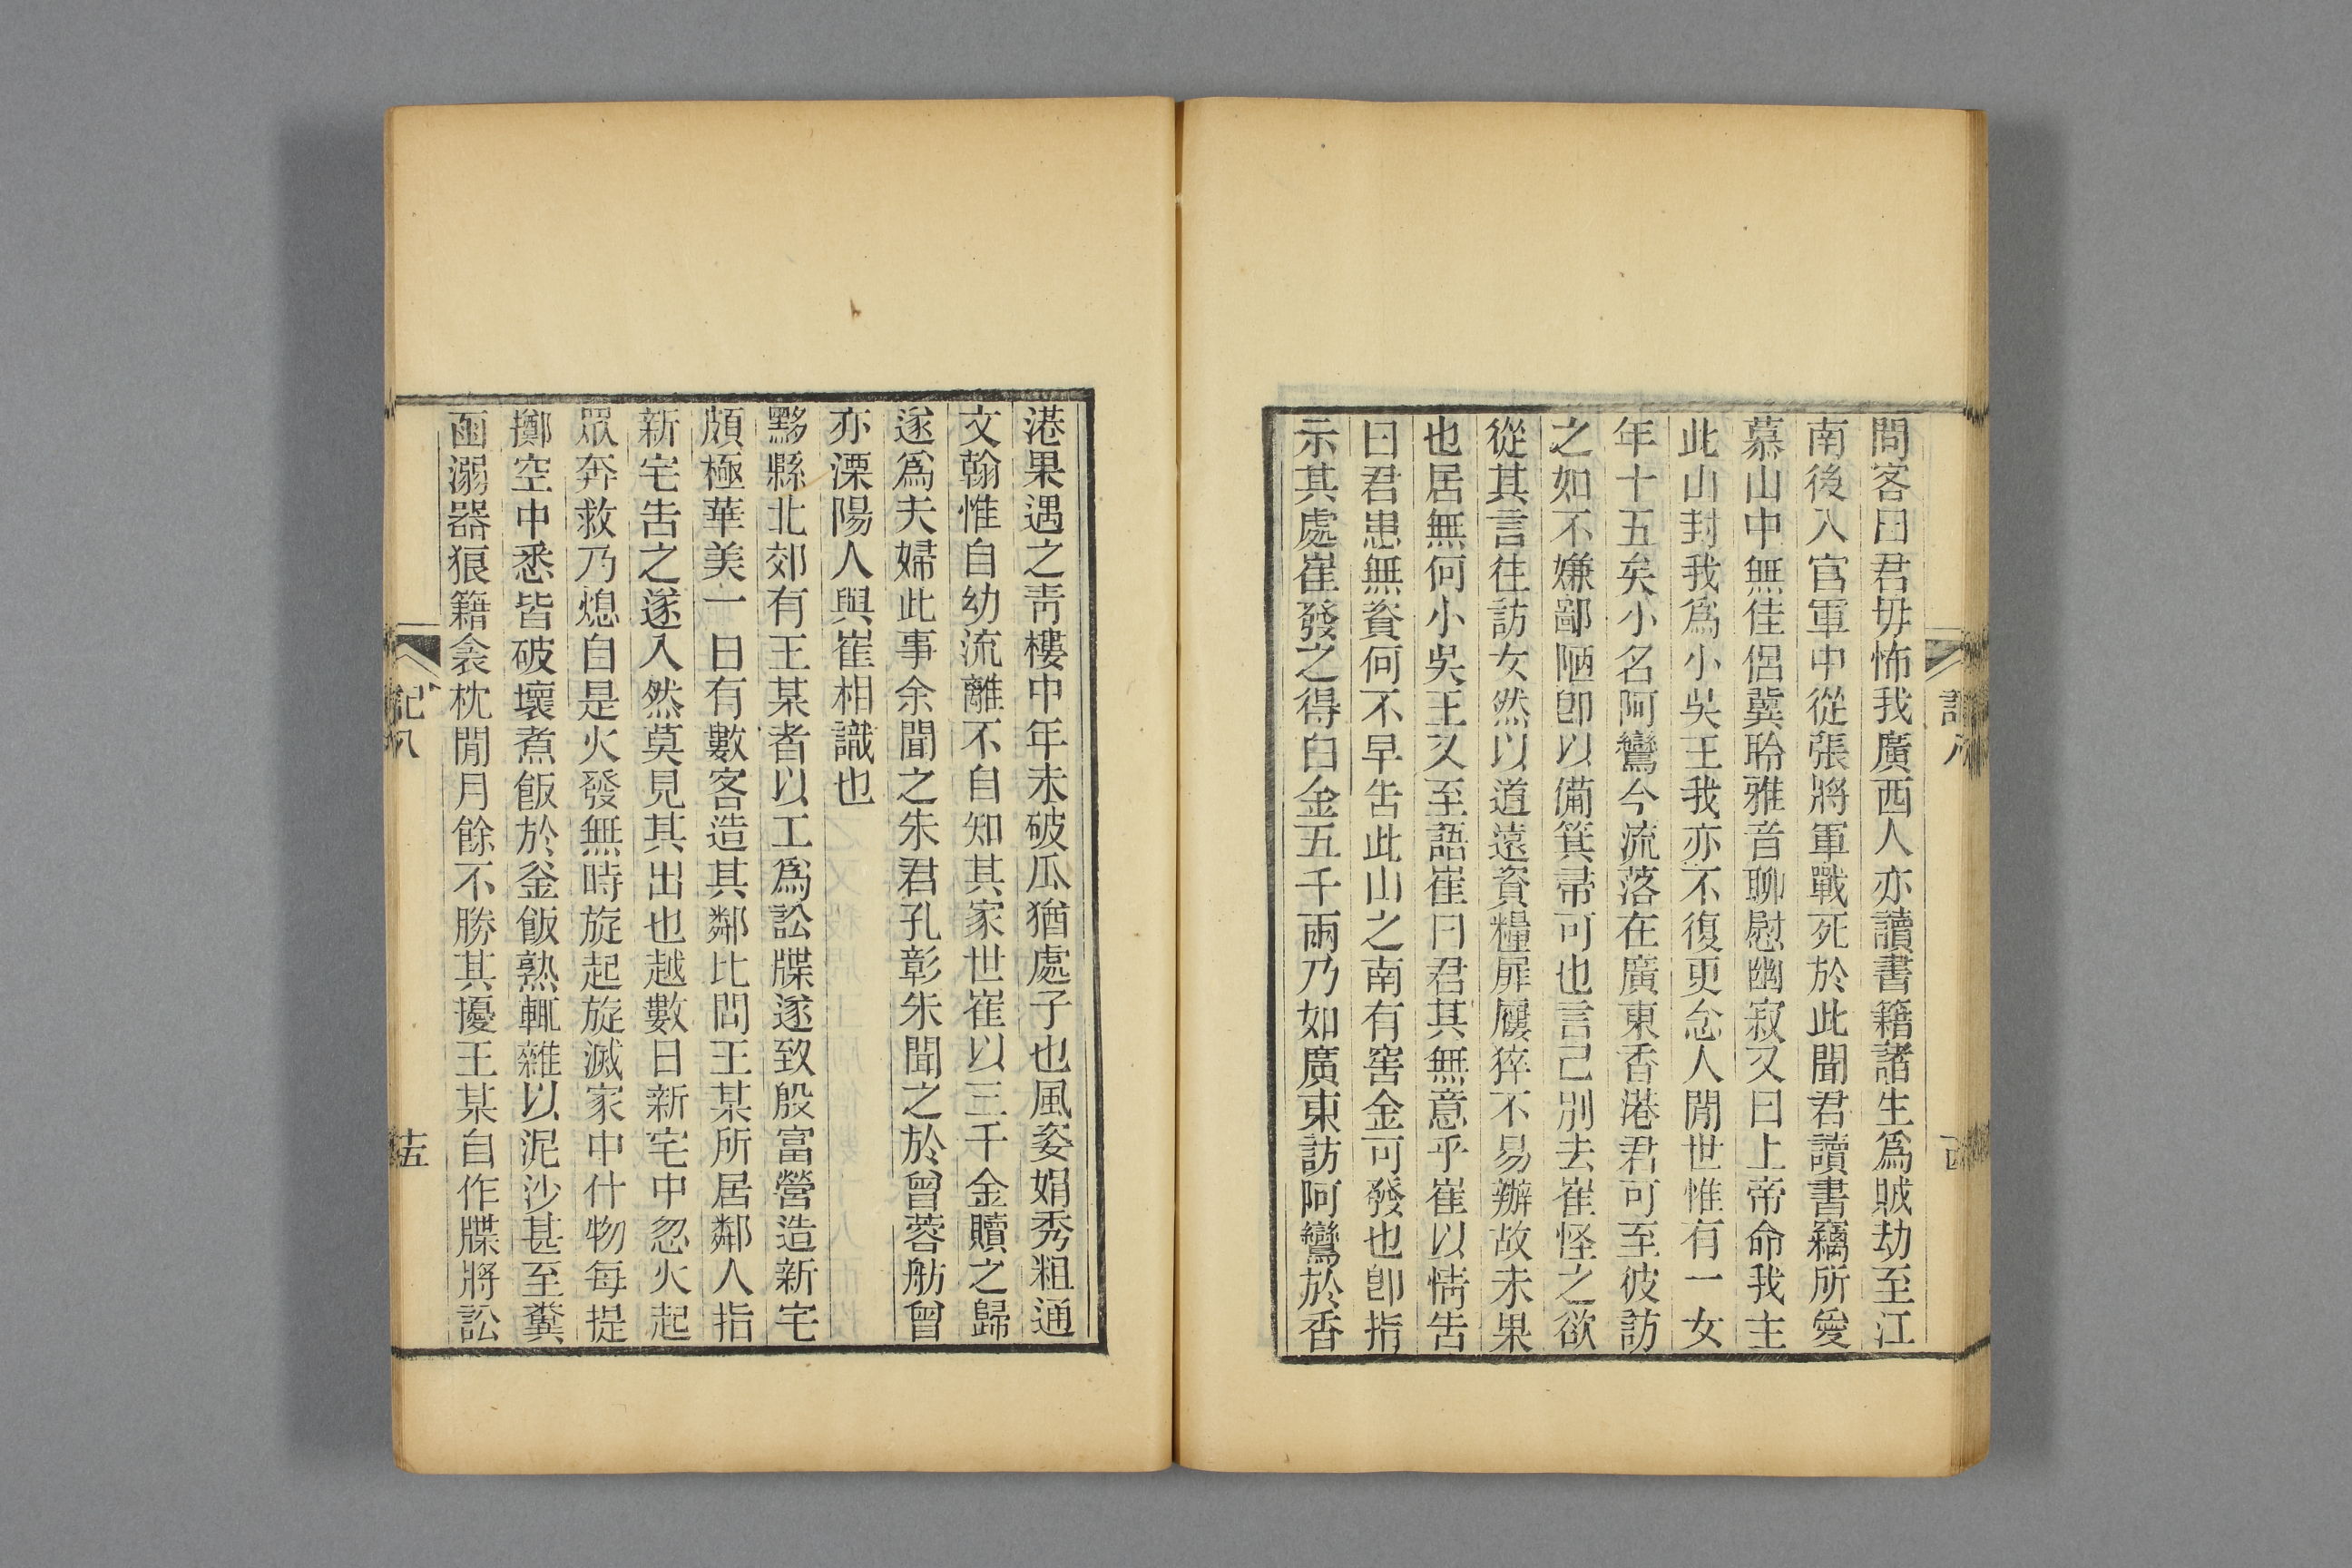 問客曰君毋怖我廣西人亦讀書籍諸生爲賊劫至江
南後入官軍中從張將軍戰死於此聞君讀書竊所愛
慕山中無佳侶冀聆雅音聊慰幽寂又曰上帝命我主
此山封我爲小吳王我亦不復更念人閒世惟有一女
年十五矣小名阿鸞今流落在廣東香港君可至彼訪
之如不嫌鄙陋卽以備箕帚可也言已別去崔怪之欲
從其言往訪女然以道遠資糧屝屨猝不易辦故未果
也居無何小吳王又至語崔曰君其無意乎崔以情告
曰君患無資何不早告此山之南有窖金可發也卽指
示其處崔發之得白金五千兩乃如廣東訪阿鸞於香
港果遇之靑樓中年未破瓜猶處子也風姿娟秀粗通
文翰惟自幼流離不自知其家世崔以三千金贖之歸
遂爲夫婦此事余聞之朱君孔彰朱聞之於曾蓉舫曾
亦溧陽人與崔相識也
黟縣北郊有王某者以工爲訟牒遂致殷富營造新宅
頗極華美一日有數客造其鄰比問王某所居鄰人指
新宅告之遂入然莫見其出也越數日新宅中忽火起
眾奔救乃熄自是火發無時旋起旋滅家中什物每提
擲空中悉皆破壞煮飯於釜飯熟輒雜以泥沙甚至糞
函溺器狼籍衾枕閒月餘不勝其擾王某自作牒將訟
記八
十五